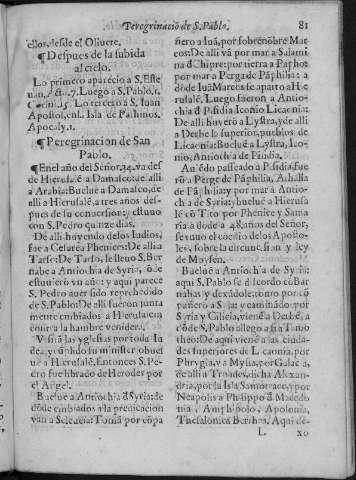 Peregrinació de S. Pablo. 81
ellos, desde el Olivete.
¶ Despues de la subida
al cielo.
Lo primero aparecio a S. Este
uan, Luego a S. Pablo, 1.
Corin. 15 Lo tercero a S. Iuan
Apostol, enl. Isla de Pathmos.
Apocaly. 1.
¶ Peregrinacion de San
Pablo.
¶ En el año del Señor, 34. va des
de Hierusalē a Damasco: de alli
a Arabia: Buelue a Damasco, de
alli a Hierusalē, a tres años des-
pues de su conuersion: y estuuo
con S. Pedro quinze dias.
De alli huyendo delos Iudios,
fue a Cesarea Phenicis: De alli a
Tarso: De Tarso, le lleuo S. Ber
nabe a Antiochia de Syria, dōde
estuuierō vn año: y aqui parece
S. Pedro auer sido reprehēdido
de S. Pablo: De alli fueron junta
mente embiados a Hierusalem
contra la hambre venidera.
Visita las yglesias por toda Iu
dea, y cūplido su ministerio buel
ue a Hierusalē, Entonces S. Pe-
dro fue librado de Herodes por
el Angel.
Buelue a Antiochia đ Syria: de
dōde embiados a la predicacion
van a Seleucia: Tomā por cōpa
ñero a Iuā, por sobrenōbre Mar
cos: De alli vā por mar a Salami
na đ Chipre: por tierra a Papho:
por mar a Perga de Pāphilia: a
dōde Iuā Marcos se aparto a Hie
rusalē, Luego fueron a Antio-
chia đ Pisidia Iconio Licaonia:
De alli huyerō a Lystra, y de alli
a Derbe lo superior, pueblos de
Licaonia: Buelue a Lystra, Ico-
nio, Antiochia de Pisidia.
Auiēdo passado a Pisidia, fue
rō a Perge de Pāphilia, Athalia
de Pāphilia: y por mar a Antio-
chia de Syria: buelue a Hierusa
lē cō Tito por Phenice y Sama
ria adōde a 48. años del Señor,
se tuuo el cōcilio delos Aposto-
les, sobre la circuncision y ley
de Moysen.
Buelue a Antiochia de Syria:
aqui S. Pablo se discordo cō Bar
nabas y dexādole, tomo por cō
pañero a Silas: y caminādo por
Syria y Cilicia, viene a Derbē, a
cōde S. Pablo allego a si a Timo
theo: De aqui vienē a las ciuda-
des superiores de Licaonia, por
Phrygia, va Mysia, por Galacia:
de alli a Troades, dicha Alexan-
dria, por la Isla Samotrace, y por
Neapolis a Philippo đ Macedo
nia Amphipolo, Apolonia,
Thesalonica Berthea. Aqui de-
L xo